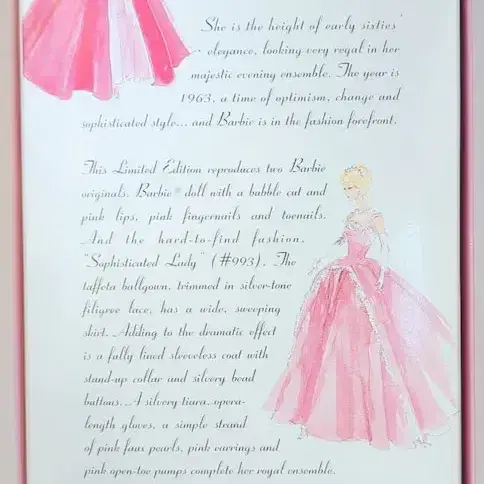 She is the height of early sixties
elegance, looking very regal in her
majestic evening ensemble. The year is
1963, a time of optimism, change and
sophisticated style... and Barbie is in the fashion forefront.
This Limited Edition reproduces two Barbie
originals. Barbie® doll with a bubble cut and
pink lips, pink fingernails and toenails.
And the hard-to-find fashion,
"Sophisticated Lady" (#993). The
taffeta ballgown, trimmed in silver-tone
filigree lace, has a wide, sweeping
skirt. Adding to the dramatic effect
is a fully lined sleeveless coat with
stand-up collar and silvery bead
buttons. A silvery tiara, opera-
length gloves, a simple strand
of pink faux pearls, pink earrings and
pink open-toe pumps complete her royal ensemble.